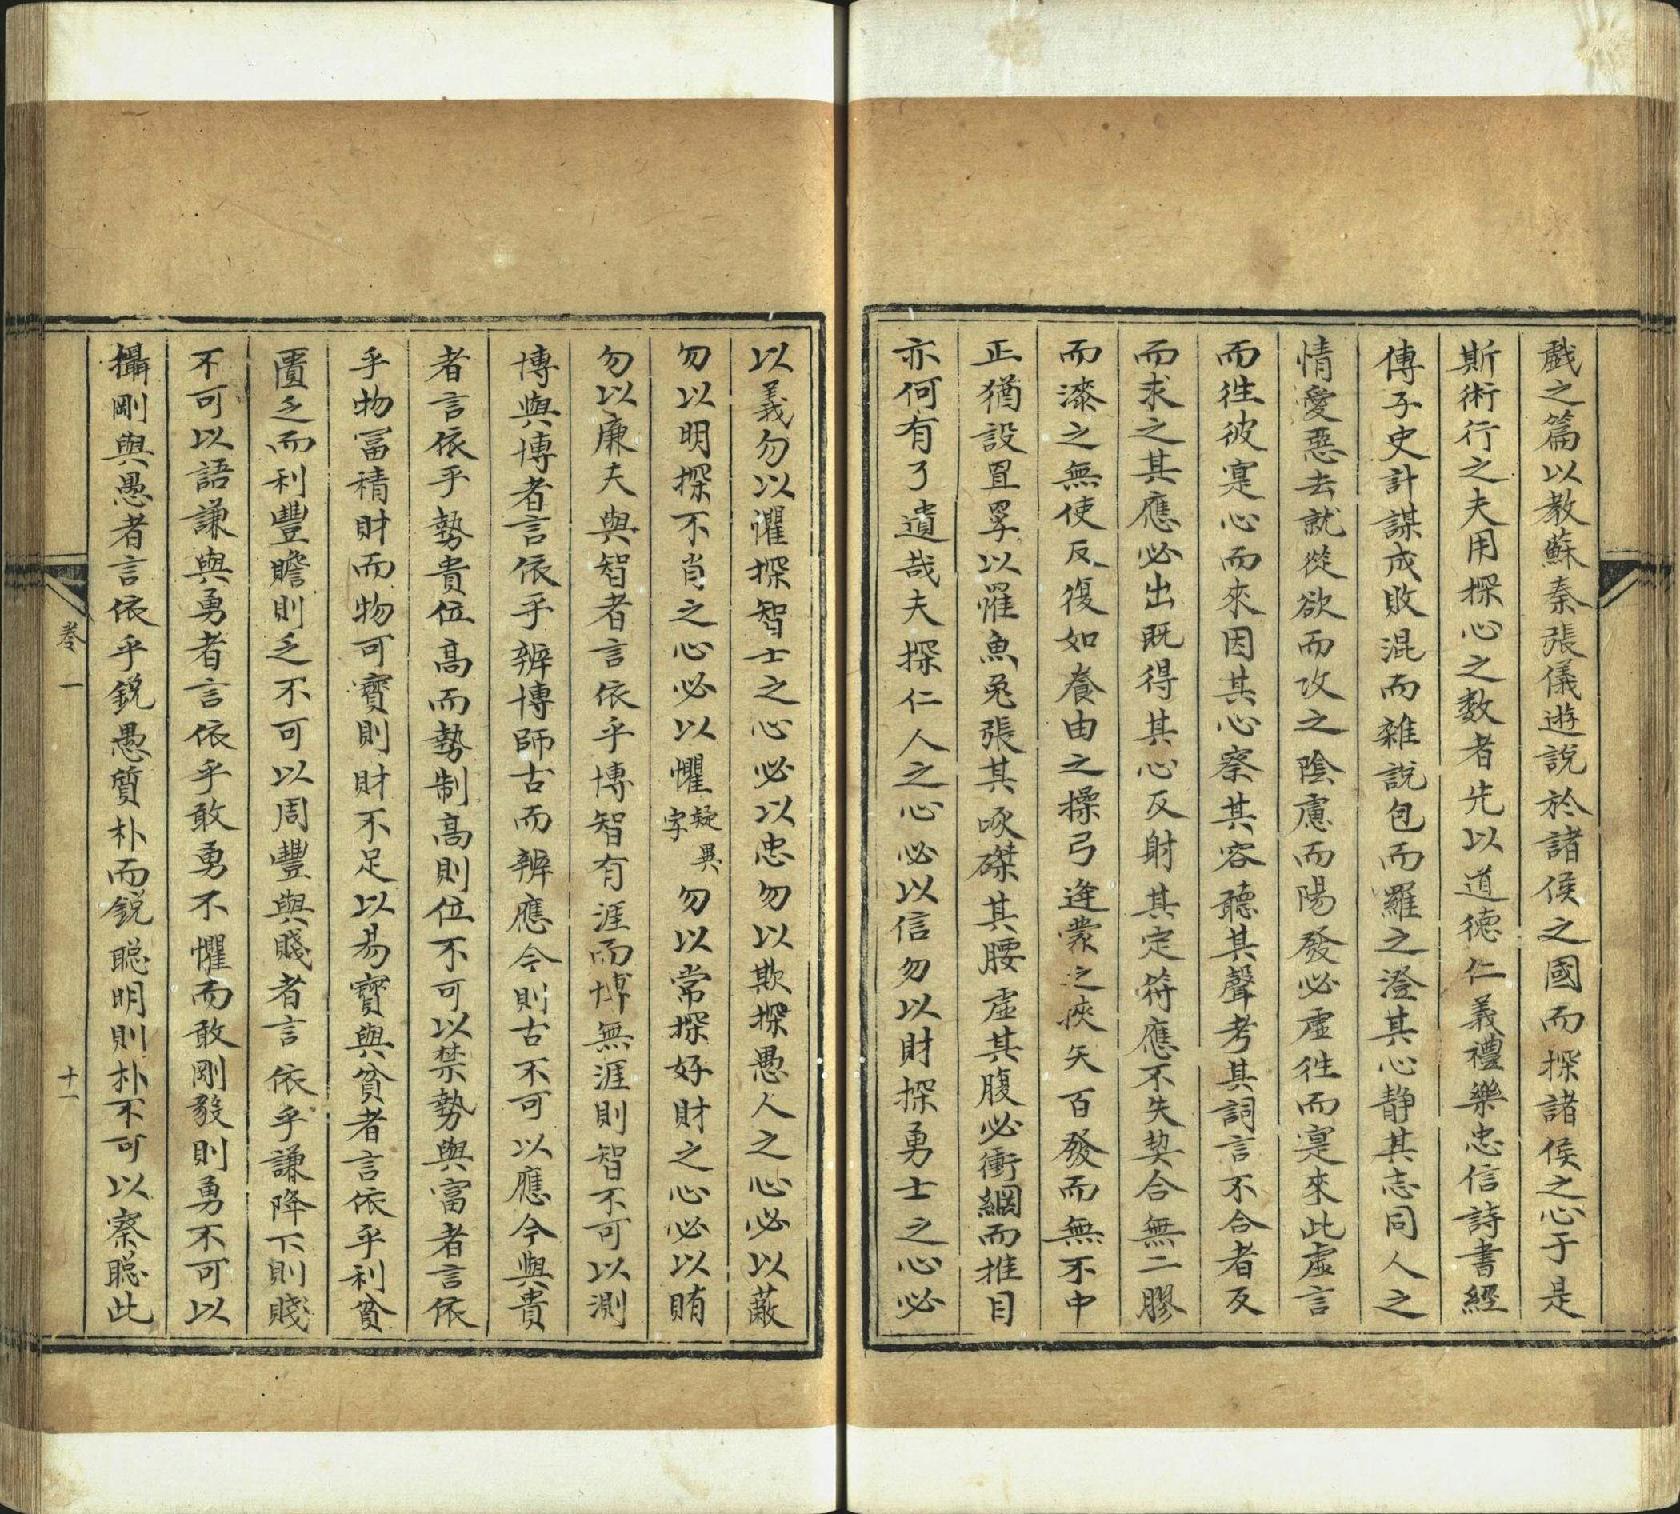 戲之篇以教蘇秦張儀遊說於諸侯之國而探諸侯之心于是
斯術行之夫用探心之数者先以道德仁義禮樂忠信詩書經
傳子史計謀成敗混而雜說包而羅之澄其心静其志同人之
情愛惡去就從欲而攻之陰慮而陽發必虛徃而寔來此虛言
而徃彼寔心而來因其心察其容聽其聲考其詞言不合者反
而求之其應必出既得其心反射其定符應不失契合無二膠
而漆之無使反復如養由之操弓逄蒙之挾矢百發而無不中
正猶設罝罦以罹魚兔張其啄磔其腰虛其腹必衝綱而掛目
亦何有孑遺哉夫探仁人之心必以信勿以財探勇士之心必
以義勿以懼探智士之心必以忠勿以欺探愚人之心必以蔽
勿以明探不肖之心必以懼疑異字勿以常探好財之心必以賄
勿以廉夫與智者言依乎博智有涯而博無涯則智不可以測
博與博者言依乎辨博師古而辨應今則古不可以應今與貴
者言依乎勢貴位高而勢制高則位不可以禁勢與富者言依
乎物冨積財而物可寳則財不足以易寳與貧者言依乎利貧
匱乏而利豐贍則乏不可以周豐與賤者言依乎謙降下則賤
不可以語謙與勇者言依乎敢勇不懼而敢剛毅則勇不可以
攝剛與愚者言依乎鋭愚質朴而鋭聰明則朴不可以察聰此
卷一
十一